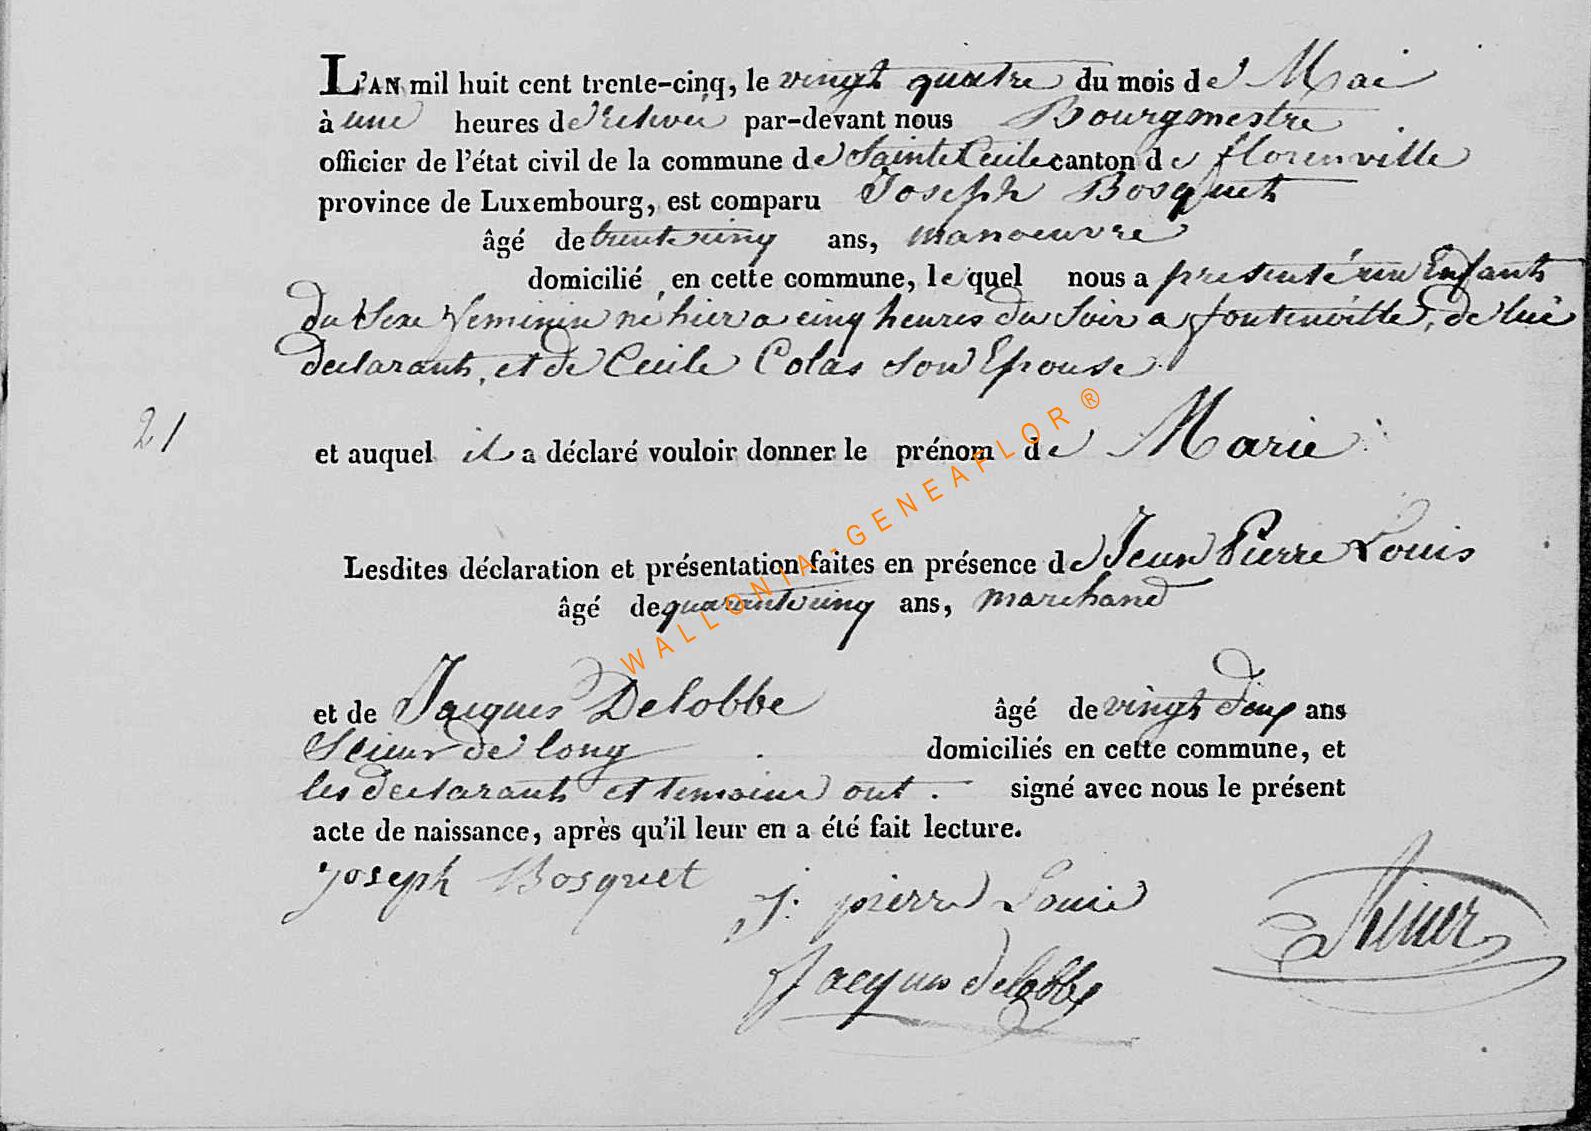 L'AN mil huit cent trente-cinq, le vingt quatre du mois de Mai
à une heures de relevée par-devant nous Bourgmestre
officier de l'état civil de la commune de Sainte Cecile canton de florenville
province de Luxembourg, est comparu Joseph Bosquet
âgé de trente cinq ans, manoeuvre
domicilié en cette commune, le quel nous a presenté un Enfant
du Sexe Feminin né hier a cinq heures du Soir a fontenoille, de lui
declarant, et de Cecile Colas son Epouse
21
et auquel il a déclaré vouloir donner le prénom de Marie
Lesdites déclaration et présentation faites en présence de Jean Pierre Louis
âgé de quarante cinq ans, marchand
et de Jacques Delobbe âgé de vingt deux ans
Scieur de long domiciliés en cette commune, et
les declarants et temoins ont signé avec nous le présent
acte de naissance, après qu'il leur en a été fait lecture.
Joseph Bosquet
J. pierre Louis
Jacques delobbe
WALLONIA-GENEAFLOR ®